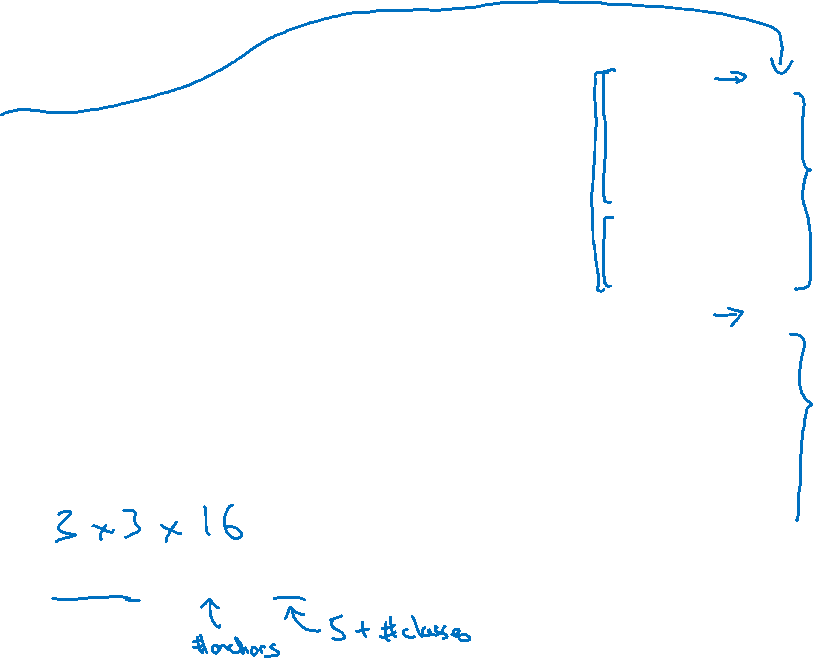 3 × 3 × 16
#anchors
5 + #classes